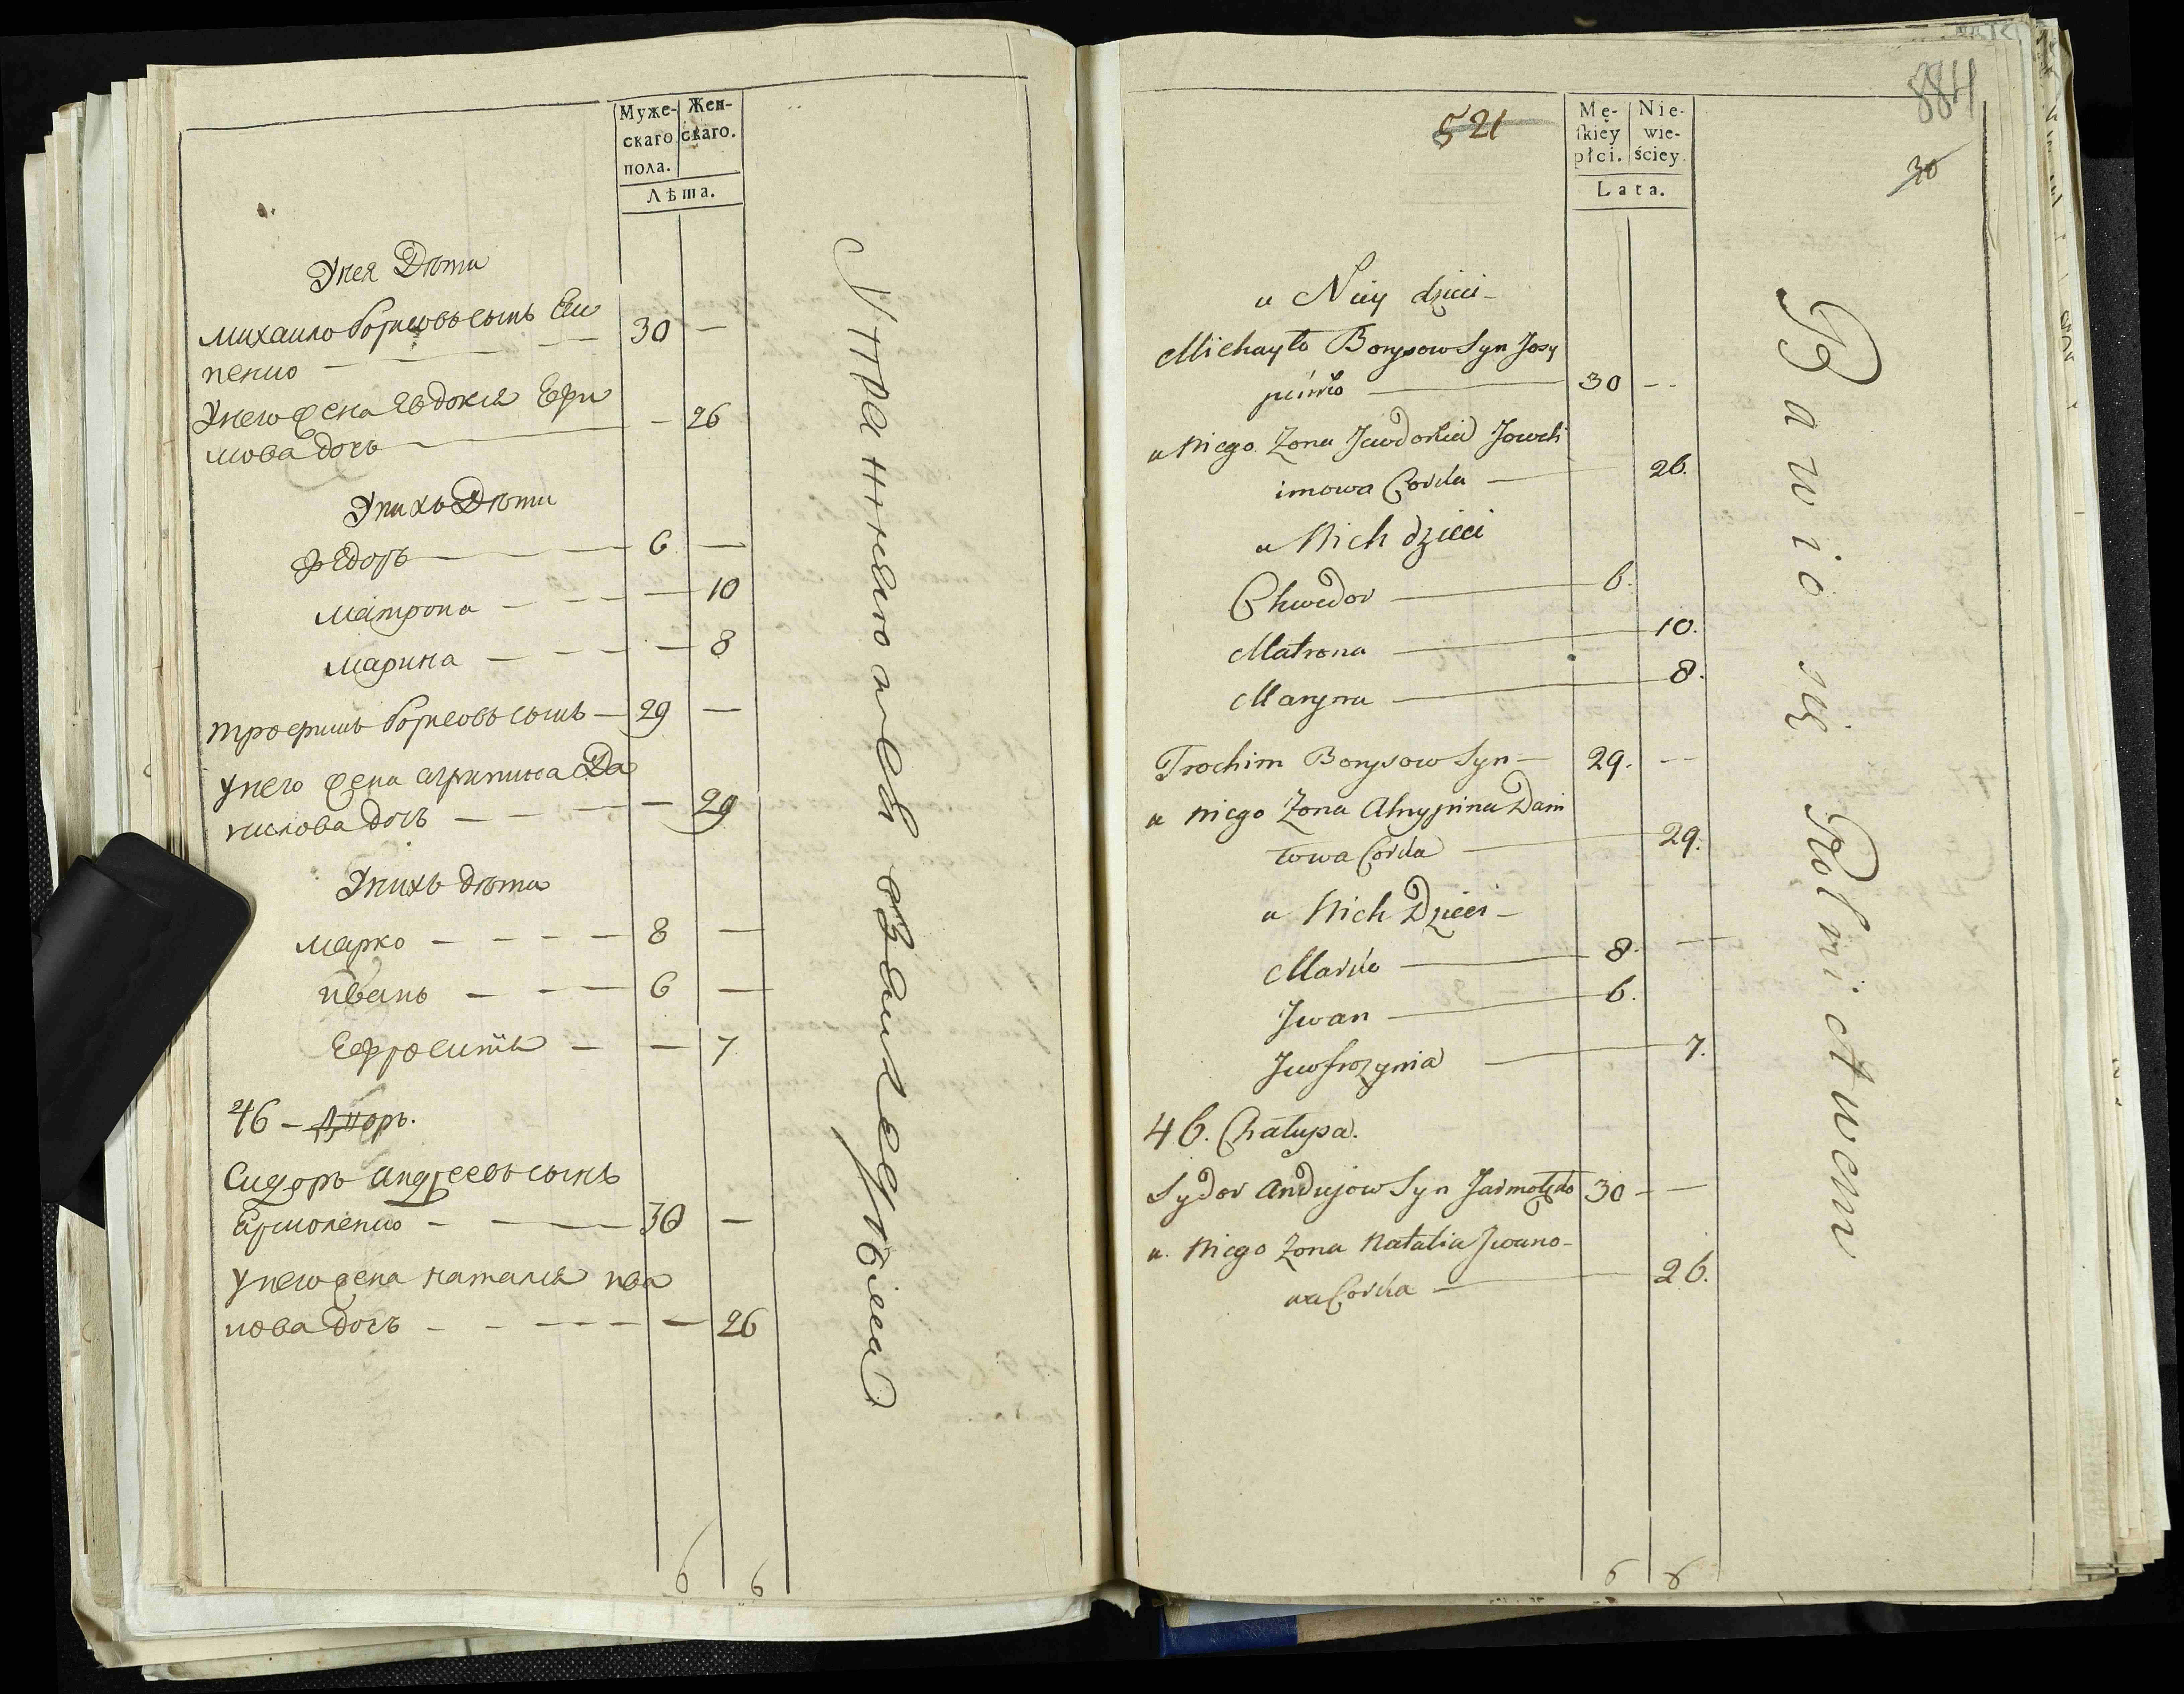 Муже-
скаго
пола.
Жен-
скаго.
Лѣта.
Унея Дѣти
Михаило борисовъ сынъ Еси
пенко — 30 —
Унего жена Евдокия Ефи
мова дочь — 26
Унихъ Дѣти
Федоръ — 6 —
Матрона — 10
Марина — 8
Трофимъ борисовъ сынъ — 29 —
Унего жена агрипина Да
нилова дочь — 29
Унихъ дѣти
Марко — 8 —
иванъ — 6 —
Ефросинïя — 7
46 — Дворъ.
Сидоръ андреевъ сынъ
Ермоленко — 30 —
Унего жена наталия ива
нова дочь — 26
6 6
884
521
30
Mę-
ſkiey
płci.
Nie-
wie-
ściey.
Lata.
u Niey dzieci
Michayło Borysow Syn Josy
pińko — 30 —
u Niego Zona Jewdokia Jowch
imowa Corka — 26.
u Nich dzieci
Chwedor — 6.
Matrona — 10.
Maryna — 8.
Trochim Borysow Syn — 29. —
u Niego Zona Ahrypina Dani
łowa Corka — 29.
u Nich Dzieci
Marko — 8. —
Jwan — 6.
Jewfrozynia — 7.
46. Chałupa.
Sydor Andrejow Syn Jarmolęko 30 —
u Niego Zona Natalia Jwano-
wa Corka — 26.
Bawio się Rolnictwem
6 6